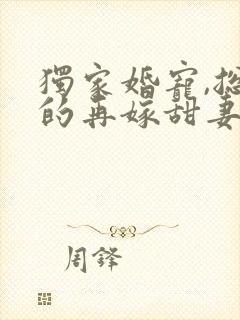 獨家婚寵,總
的再嫁甜妻
周鐸